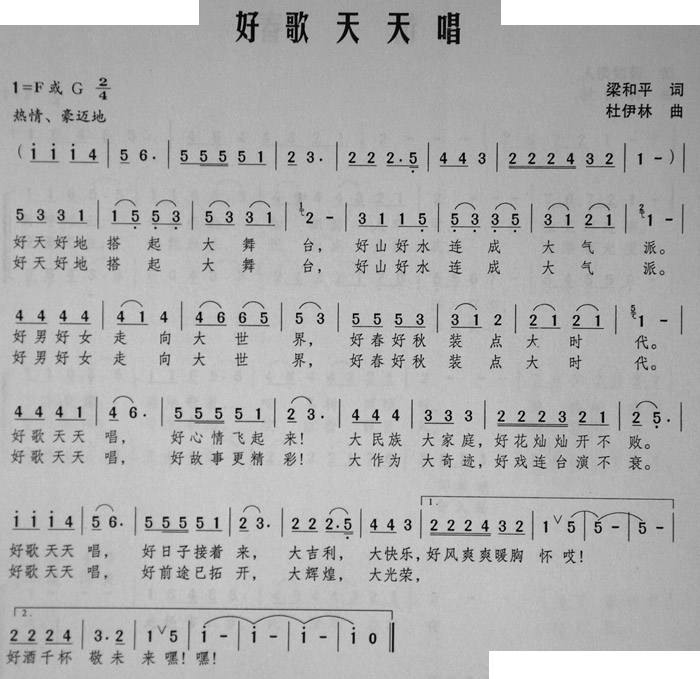 好歌天天唱
1=F或 G 2/4
梁和平 词
热情、豪迈地
杜伊林 曲
( i i i 4 | 5 6· | 5 5 5 5 1 | 2 3· | 2 2 2·5 | 4 4 3 | 2 2 2 4 3 2 | 1 - ) |
5 3 3 1 | 1 5 5 3 | 5 3 3 1 | 2 - | 3 1 1 5 | 3 5 3 5 | 3 1 2 1 | 1 - |
好天好地 搭 起 大 舞 台, 好山好水 连 成 大 气 派。
好天好地 搭 起 大 舞 台, 好山好水 连 成 大 气 派。
4 4 4 4 | 4 1 4 | 4 6 6 5 | 5 3 | 5 5 5 3 | 3 1 2 | 2 1 2 1 | 1 - |
好男好女 走 向 大 世 界, 好春好秋 装 点 大 时 代。
好男好女 走 向 大 世 界, 好春好秋 装 点 大 时 代。
4 4 4 1 | 4 6· | 5 5 5 5 1 | 2 3· | 4 4 4 | 3 3 3 | 2 2 2 3 2 1 | 2 5· |
好歌天天 唱, 好心情飞起 来! 大民族 大家庭, 好花灿灿开不 败。
好歌天天 唱, 好故事更精 彩! 大作为 大奇迹, 好戏连台演不 衰。
i i i 4 | 5 6· | 5 5 5 5 1 | 2 3· | 2 2 2·5 | 4 4 3 | 1. 2 2 2 4 3 2 | 1 ∨ 5 | 5 - | 5 - |
好歌天天 唱, 好日子接着 来, 大吉利, 大快乐, 好风爽爽暖胸 怀 哎!
好歌天天 唱, 好前途已拓 开, 大辉煌, 大光荣,
2. 2 2 2 4 | 3·2 | 1 ∨ 5 | i - | i - | i - | i 0 ‖
好酒千杯 敬 未 来 嘿! 嘿!